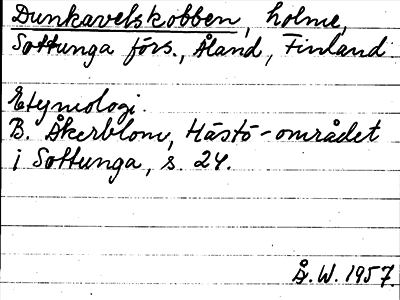 Dunkavelskobben, holme,
Sottunga förs., Åland, Finland
Etymologi.
B. Åkerblom, Hästö-området
i Sottunga, s. 24.
Å. W. 1957.